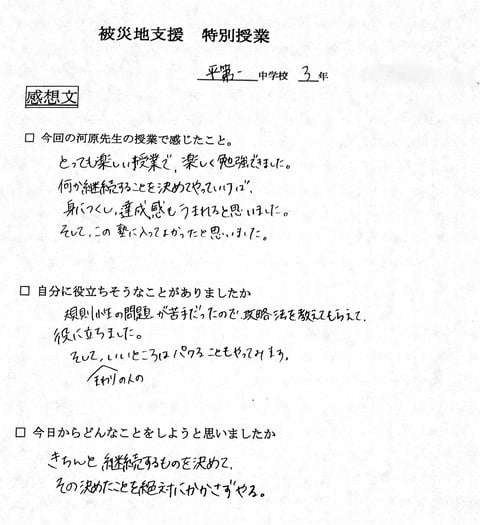 被災地支援 特別授業
平第一中学校 3年
感想文
□ 今回の河原先生の授業で感じたこと。
とっても楽しい授業で、楽しく勉強できました。
何か継続することを決めてやっていけば、
身につくし、達成感もうまれると思いました。
そして、この塾に入ってよかったと思いました。
□ 自分に役立ちそうなことがありましたか
規則性の問題が苦手だったので、攻略法を教えてもらえて、
役に立ちました。
そして、まわりの人のいいところはパクることもやってみます。
□ 今日からどんなことをしようと思いましたか
きちんと継続するものを決めて、
その決めたことを絶対にかかさずやる。